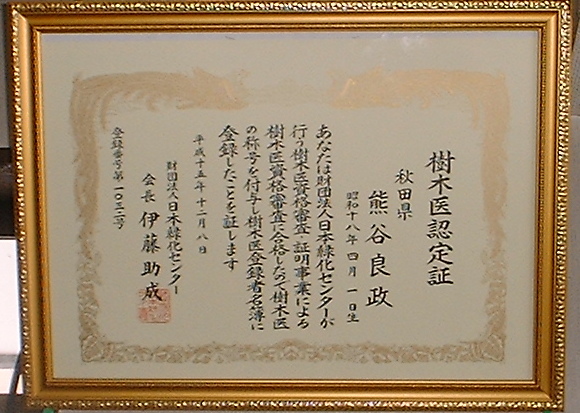 樹木医認定証
秋田県
熊谷良政
昭和十八年四月一日生
あなたは財団法人日本緑化センターが
行う樹木医資格審査・証明事業による
樹木医資格審査に合格したので樹木医
の称号を付与し樹木医登録者名簿に
登録したことを証します
平成十五年十二月八日
財団法人日本緑化センター
会長 伊藤助成
登録番号第一〇三二号